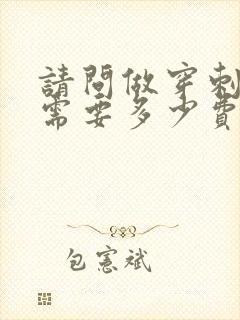 請問做穿刺
需要多少費
包憲斌